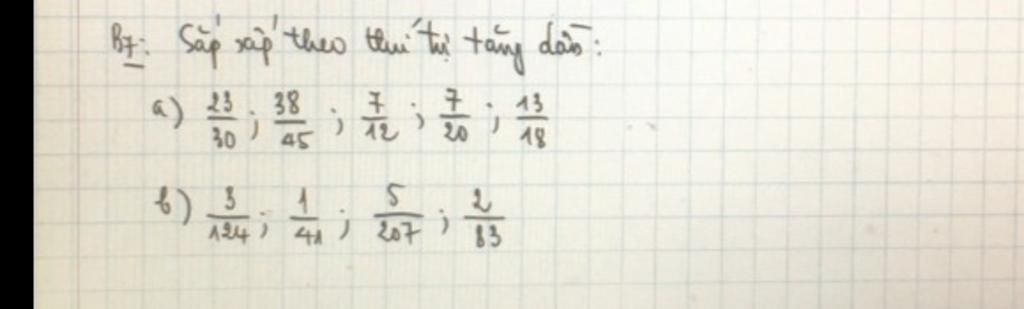 B7: Sắp xếp theo thứ tự tăng dần:
a) 23/30 ; 38/45 ; 7/12 ; 7/20 ; 13/18
b) 3/124 ; 1/41 ; 5/207 ; 2/83